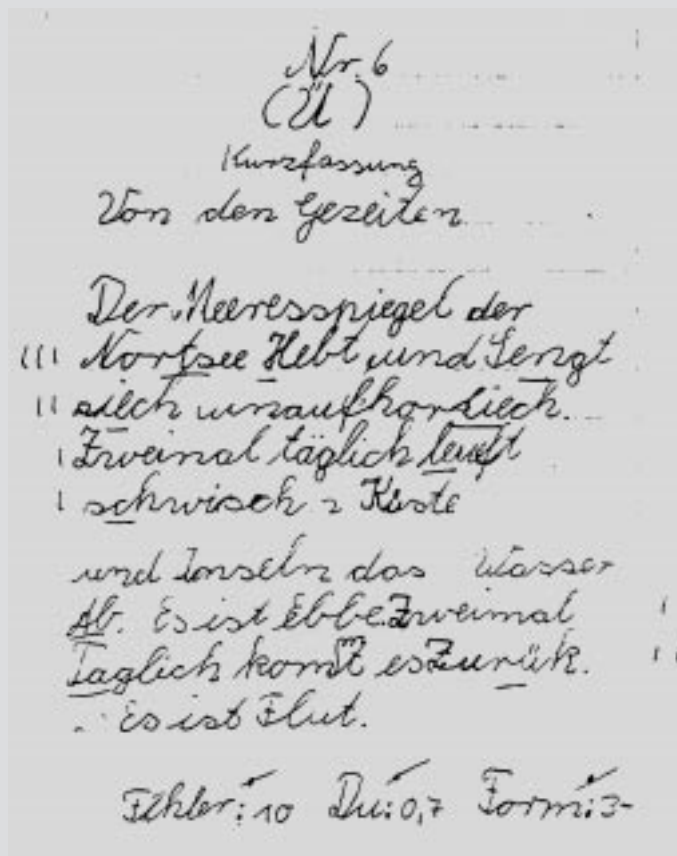 Nr. 6
(Ü)
Kurzfassung
Von den Gezeiten
Der Meeresspiegel der
Nortsee Hebt und Sengt
siech unaufhorliech.
Zweimal täglich leuft
schwisch n Küste
und Inseln das Wasser
Ab. Es ist Ebbe. Zweimal
Täglich komt es Zurük.
Es ist Flut.
Fehler: 10 Du: 0,7 Form: 3-